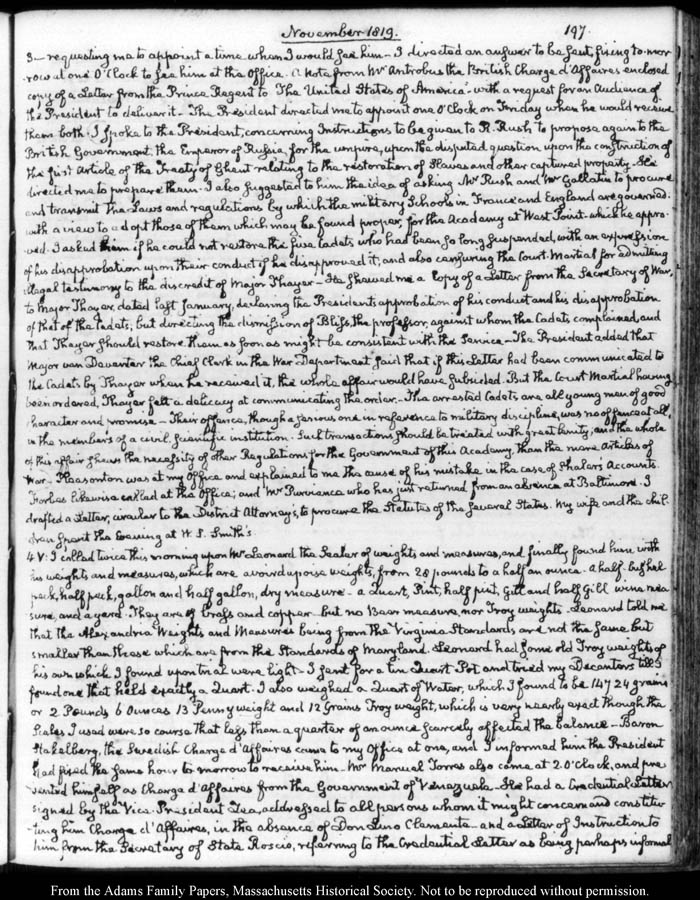 November 1819.
197.
3.— requesting me to appoint a time when I would see him — I directed an answer to be sent, fixing to-mor
row at one O'Clock to see him at the Office. A Note from Mr Antrobus the British Chargé d'Affaires enclosed
copy of a Letter from the Prince Regent to The United States of America — with a request for an Audience of
the President to deliver it — The President directed me to appoint one O'Clock on Friday when he would receive
them both. I spoke to the President, concerning Instructions to be given to R. Rush to propose again to the
British Government the Emperor of Russia, for the umpire, upon the disputed question upon the construction of
the first Article of the Treaty of Ghent relating to the restoration of Slaves and other captured property. He
directed me to prepare them. I also suggested to him the idea of asking Mr Rush and Mr Gallatin to procure
and transmit the Laws and regulations by which the military Schools in France and England are governed.
with a view to adopt those of them which may be found proper, for the Academy at West Point. which he appro-
ved. I asked him if he could not restore the five Cadets who had been so long suspended, with an expression
of his disapprobation upon their conduct if he disapproved it, and also censuring the Court-Martial for admitting
illegal testimony to the discredit of Major Thayer — He shewed me a Copy of a Letter from the Secretary of War,
to Major Thayer, dated last January, declaring the Presidents approbation of his conduct and his disapprobation
of that of the Cadets, but directing the dismission of Bliss, the professor, against whom the Cadets complained, and
that Thayer should restore them as soon as might be consistent with the Service — The President added that
Major van Deventer the Chief Clerk in the War-Department said that if this Letter had been communicated to
the Cadets by Thayer when he received it, the whole affair would have subsided. But the Court Martial having
been ordered, Thayer felt a delicacy at communicating the order. — The arrested Cadets are all young men of good
character and promise — Their offence, though a serious one in reference to military discipline, was no offence at all,
in the members of a civil, scientific institution. Such transactions should be treated with great lenity, and the whole
of this affair shews the necessity of other Regulations for the Government of this Academy, than the mere Articles of
War — Pleasonton was at my Office and explained to me the cause of his mistake in the case of Phalers Accounts.
Forbes likewise called at the Office; and Mr Purviance who has just returned from an absence at Baltimore. I
drafted a Letter, circular to the District Attorney's, to procure the Statutes of the several States. My wife and the chil-
dren spent the Evening at W. S. Smith's
4. V: I called twice this morning upon Mr Leonard the Sealer of weights and measures, and finally found him with
his weights and measures, which are avoirdupoise weights, from 28 pounds to a half an ounce. a half-bushel
peck, half peck, gallon and half gallon, dry measure — a Quart, Pint, half pint, Gill and half Gill wine mea
sure, and a yard. They are of brass and copper — but no Beer measure, nor Troy weights. Leonard told me
that the Alexandria Weights and Measures being from the Virginia Standards, are not the same but
smaller than these which are from the Standards of Maryland. Leonard had some old Troy weights of
his own which I found upon trial were light. I sent for a tin Quart Pot and tried my Decanters till I
found one that held exactly a Quart. I also weighed a Quart of Water, which I found to be 147 24 grains
or 2 Pounds 6 Ounces 13 Penny weight and 12 Grains Troy weight, which is very nearly exact though the
Scales I used were so coarse that less than a quarter of an ounce scarcely affected the balance — Baron
Stakelberg, the Swedish Chargé d'Affaires came to my Office at one, and I informed him the President
had fixed the same hour to-morrow to receive him — Mr Manuel Torres also came at 2 O'Clock, and pre
sented himself as Chargé d'Affaires from the Government of Venezuela. He had a Credential Letter
signed by the Vice-President Zea, addressed to all persons whom it might concern and constitu
ting him Chargé d'Affaires, in the absence of Don Lino Clemente — and a Letter of Instruction to
him, from the Secretary of State Roscio, referring to the Credential Letter as being perhaps informal
From the Adams Family Papers, Massachusetts Historical Society. Not to be reproduced without permission.